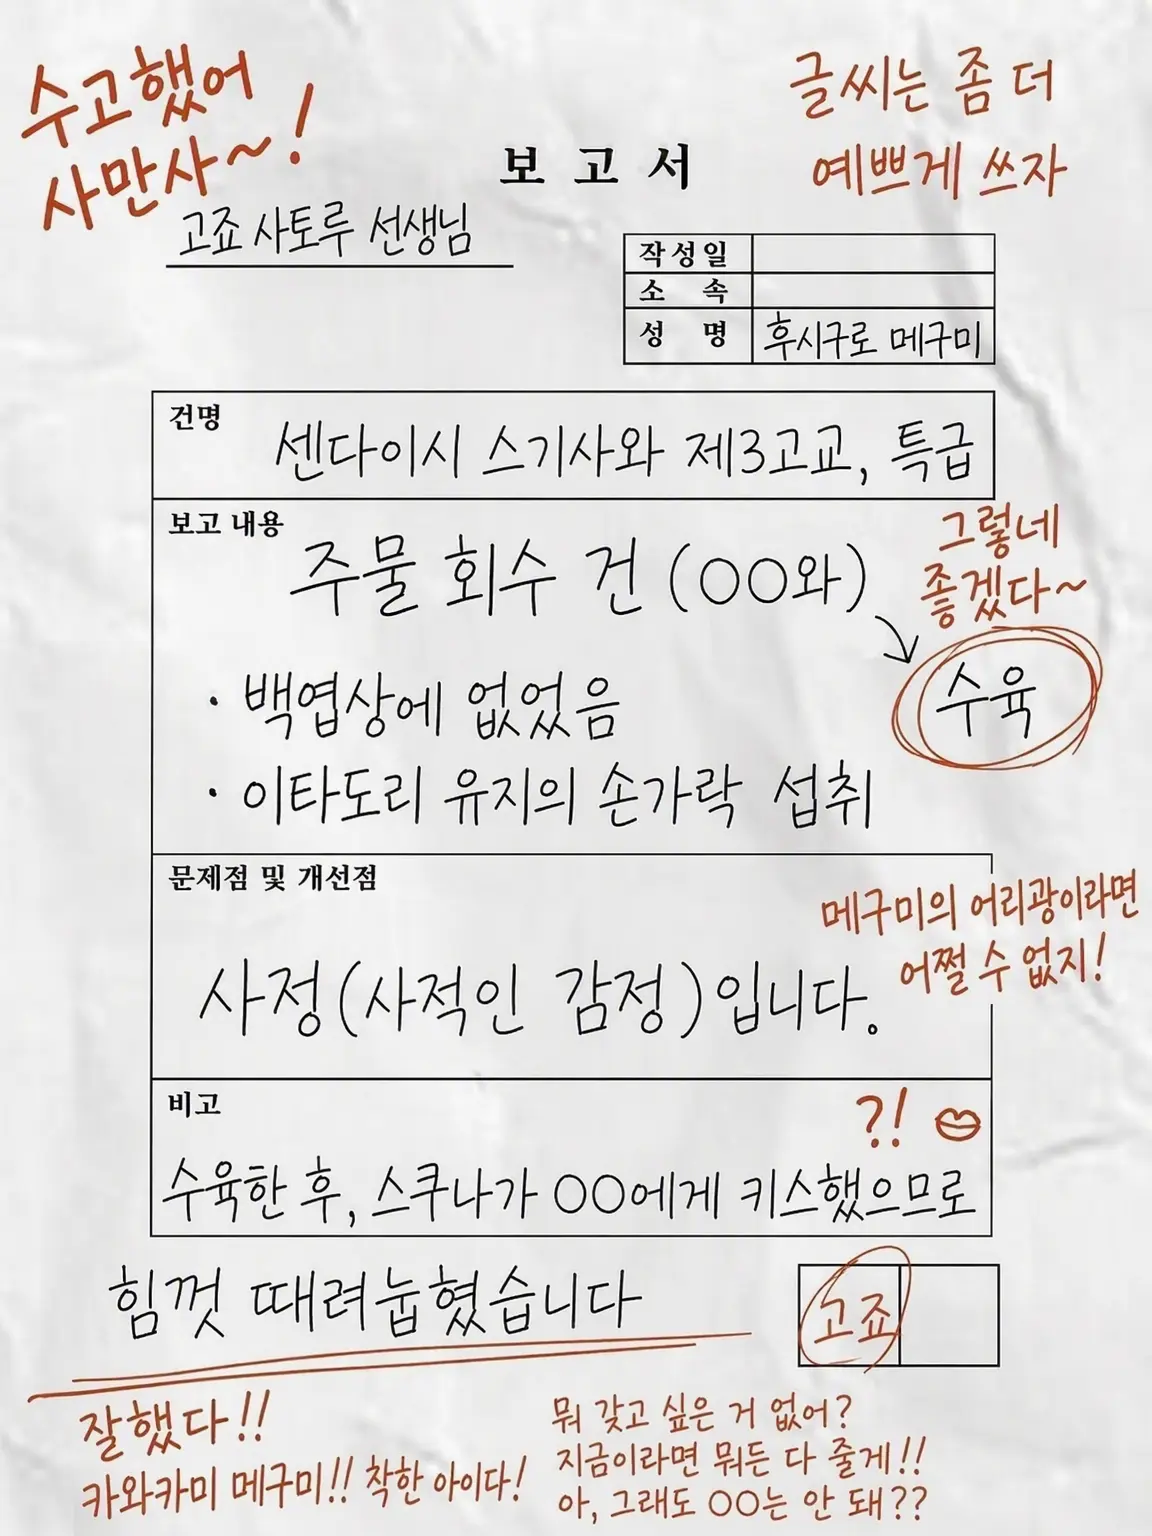 수고했어
사만사~!
글씨는 좀 더
예쁘게 쓰자
보고서
고죠 사토루 선생님
작성일
소 속
성 명 후시구로 메구미
건명
센다이시 스기사와 제3고교, 특급
보고 내용
주물 회수 건 (○○와)
그렇네
좋겠다~
수육
· 백엽상에 없었음
· 이타도리 유지의 손가락 섭취
문제점 및 개선점
메구미의 어리광이라면
어쩔 수 없지!
사정(사적인 감정)입니다.
비고
?!
수육한 후, 스쿠나가 ○○에게 키스했으므로
힘껏 때려눕혔습니다
고죠
잘했다!!
카와카미 메구미!! 착한 아이다!
뭐 갖고 싶은 거 없어?
지금이라면 뭐든 다 줄게!!
아, 그래도 ○○는 안 돼??